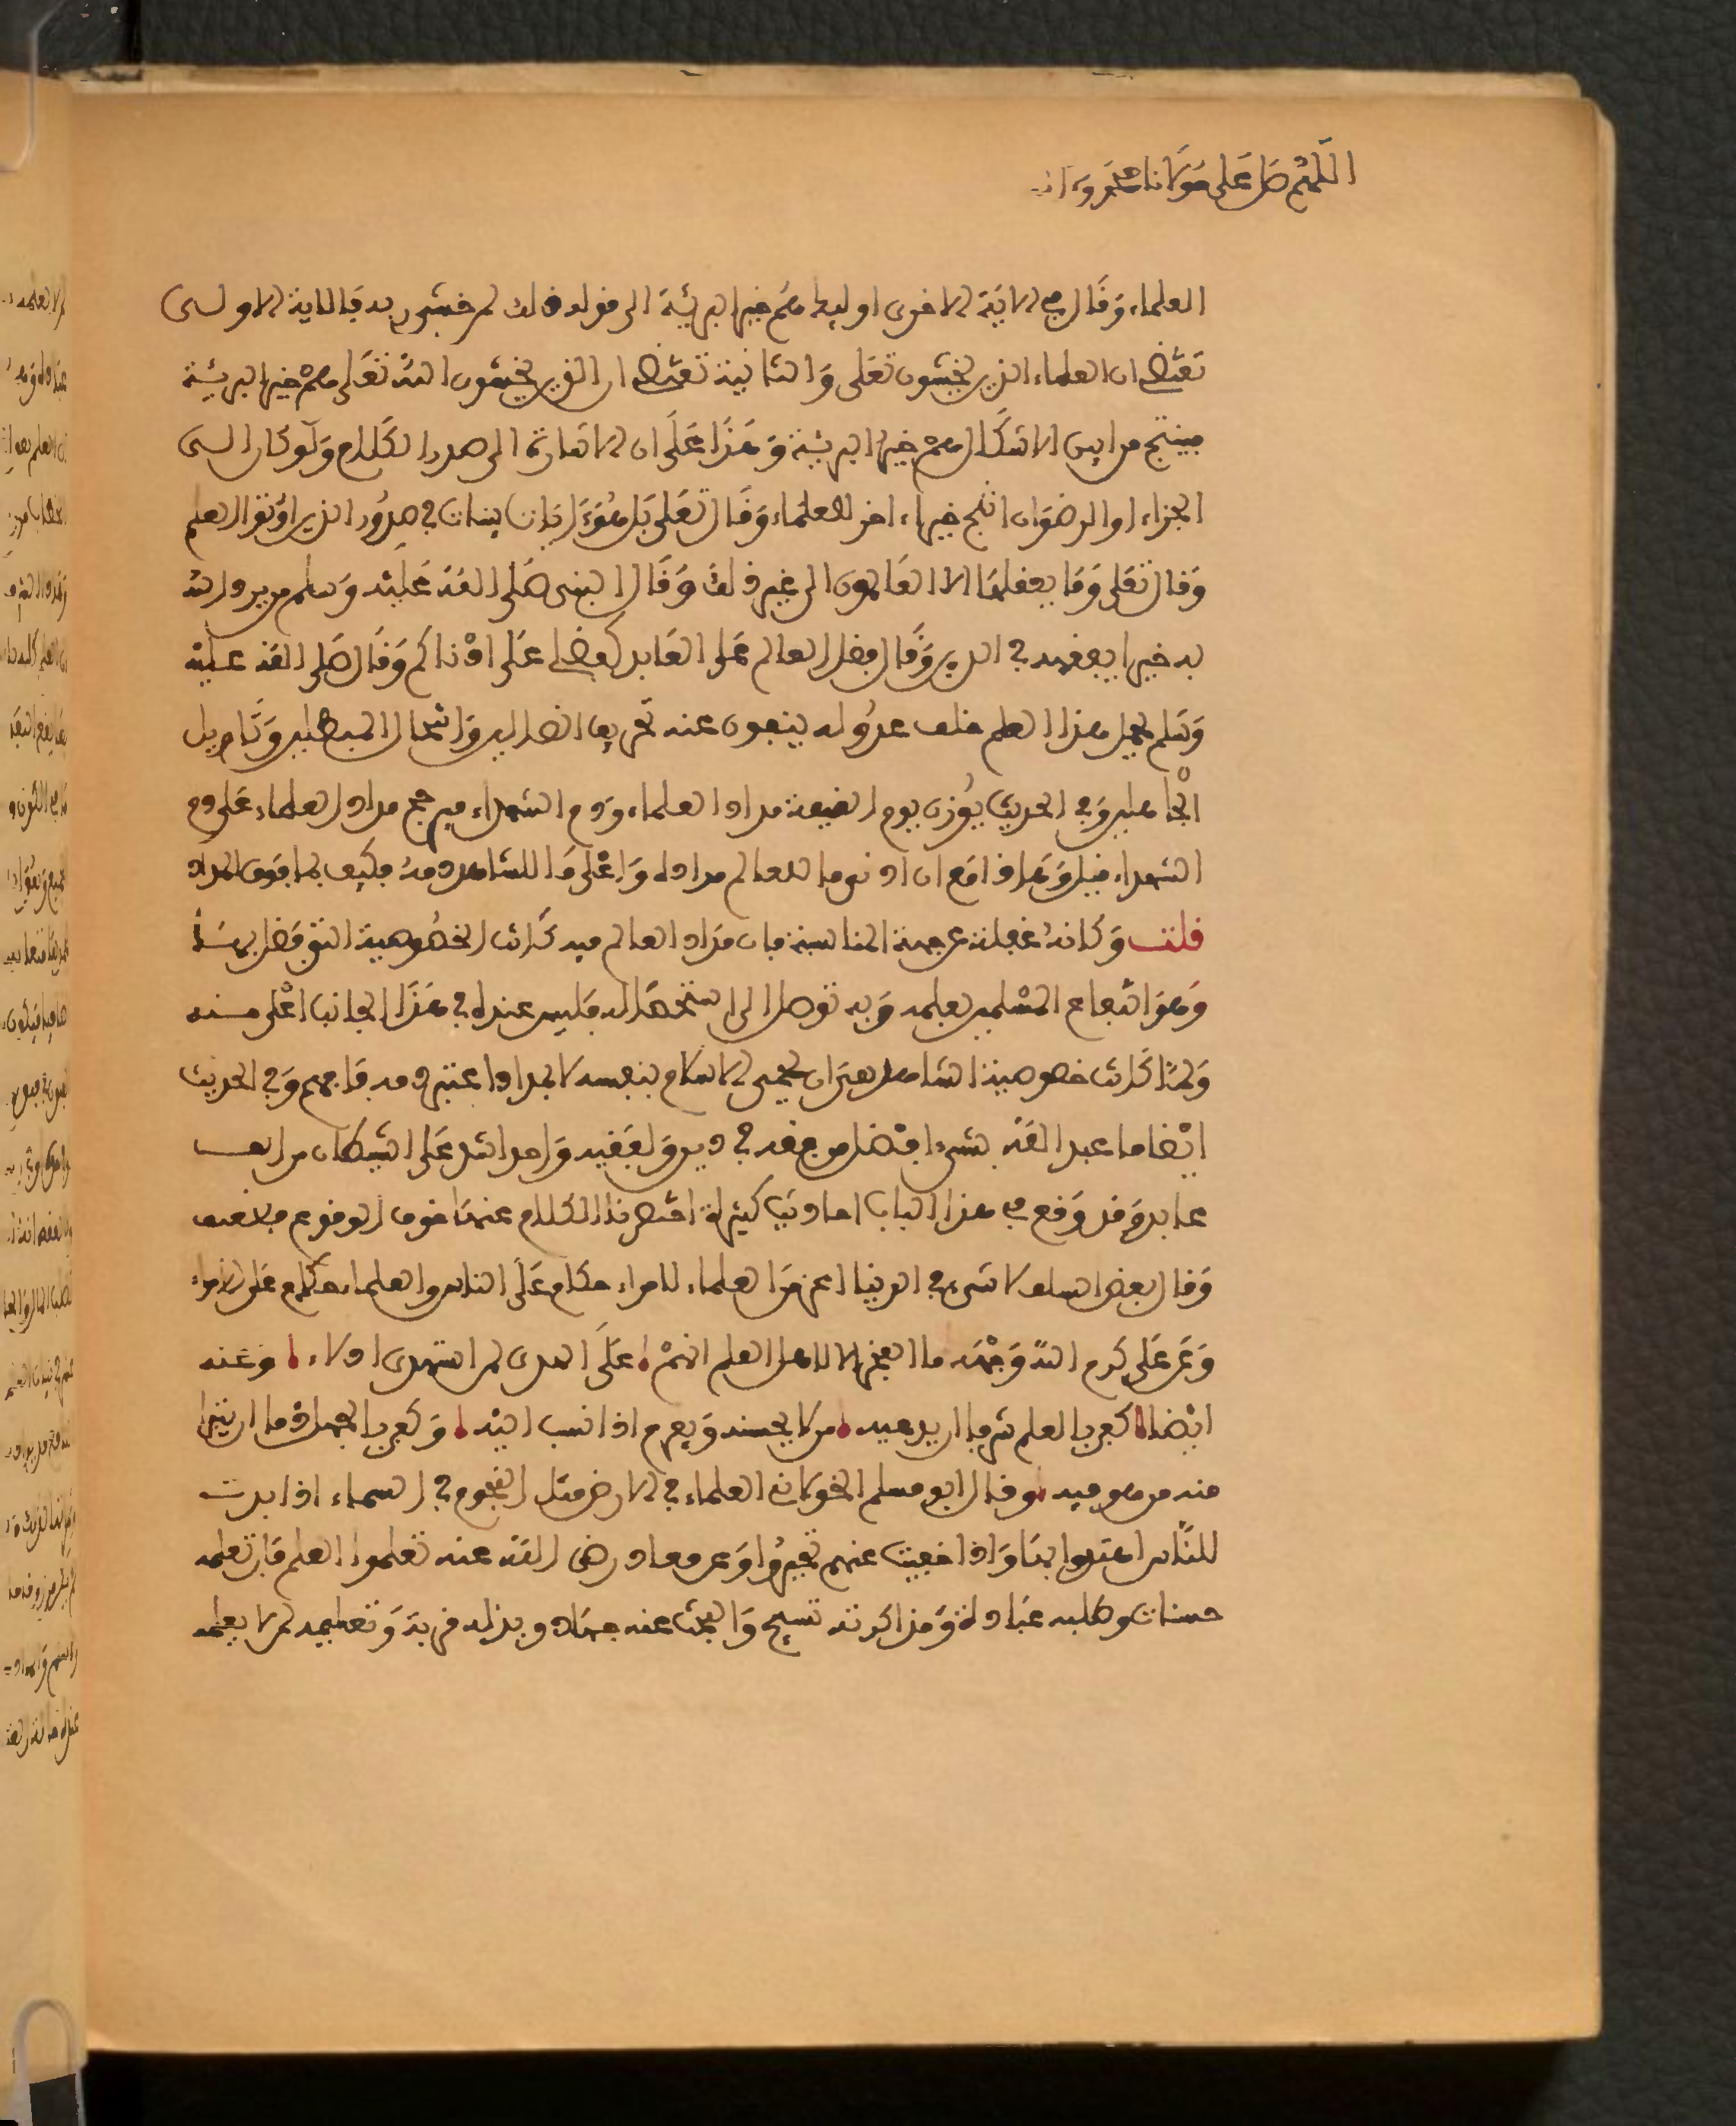 اللهم صل على مولانا محمد وءاله
العلماء وقال في الاية الاخرى اولئك هم خير البرية الى قوله ذلك لمن خشي ربه فالاية الاولى
تقتضي ان العلماء الذين يخشون تعلى والثانية تقتضي ان الذين يخشون الله تعلى هم خير البرية
فينتج من ايس الاشكال هم خير البرية وهذا على ان الاشارة الى صدر الكلام ولو كان الى
الجزاء او الرضوان انتج خيرا اخر للعلماء وقال تعلى بل هو ءايات بينات في صدور الذين اوتوا العلم
وقال تعلى وما يعقلها الا العالمون الى غير ذلك وقال النبي صلى الله عليه وسلم من يرد الله
به خيرا يفقهه في الدين وقال فضل العالم على العابد كفضلي على اذناكم وقال صلى الله عليه
وسلم يحمل هذا العلم من خلف عدوله ينفون عنه تحريف الضالين وانتحال المبطلين وتاويل
الجاهلين وفي الحديث يوزن يوم القيمة مداد العلماء ودم الشهداء فيرجح مداد العلماء على دم
الشهداء قيل وهذا مع ان ادنى ما للعالم مداده واعلى ما للشاهد دمه فكيف بما فوق المداد
قلت وكانه غفلة عن جهة المناسبة فان مداد العالم فيه كانت الخصوصية التي فضل بها
وهو انتفاع المسلمين بعلمه وبه توصل الى استحصاله فليس عنده في هذا الجانب اعلى منه
ولما كانت خصوصية الشاهد هي ان يحمي الاسلام بنفسه لا بمداد اعتبر دمه فافهم وفي الحديث
ايضا ما عبد الله بشيء افضل من فقه في دين ولفقيه واحد اشد على الشيطان من الف
عابد وقد وقع في هذا الباب احاديث كثيرة اختصرنا الكلام عنها خوف الوقوع في
وقال بعض السلف لا شيء في الدنيا اعز من العلماء الامراء حكام على الناس والعلماء حكام على الامراء
وعن علي كرم الله وجهه ما الفخر الا لاهل العلم انهم على الهدى لمن استهدى ادلاء وعنه
ايضا كفى بالعلم شرفا ان يدعيه من لا يحسنه ويفرح اذا نسب اليه وكفى بالجهل ذما ان يتبرا
منه من هو فيه وقال ابو مسلم الخولاني العلماء في الارض مثل النجوم في السماء اذا بدت
للناس اهتدوا بها واذا خفيت عنهم تحيروا وعن معاذ رضي الله عنه تعلموا العلم فان تعلمه
حسنات وطلبه عبادة ومذاكرته تسبيح والبحث عنه جهاد وبذله قربة وتعليمه لمن لا يعلمه